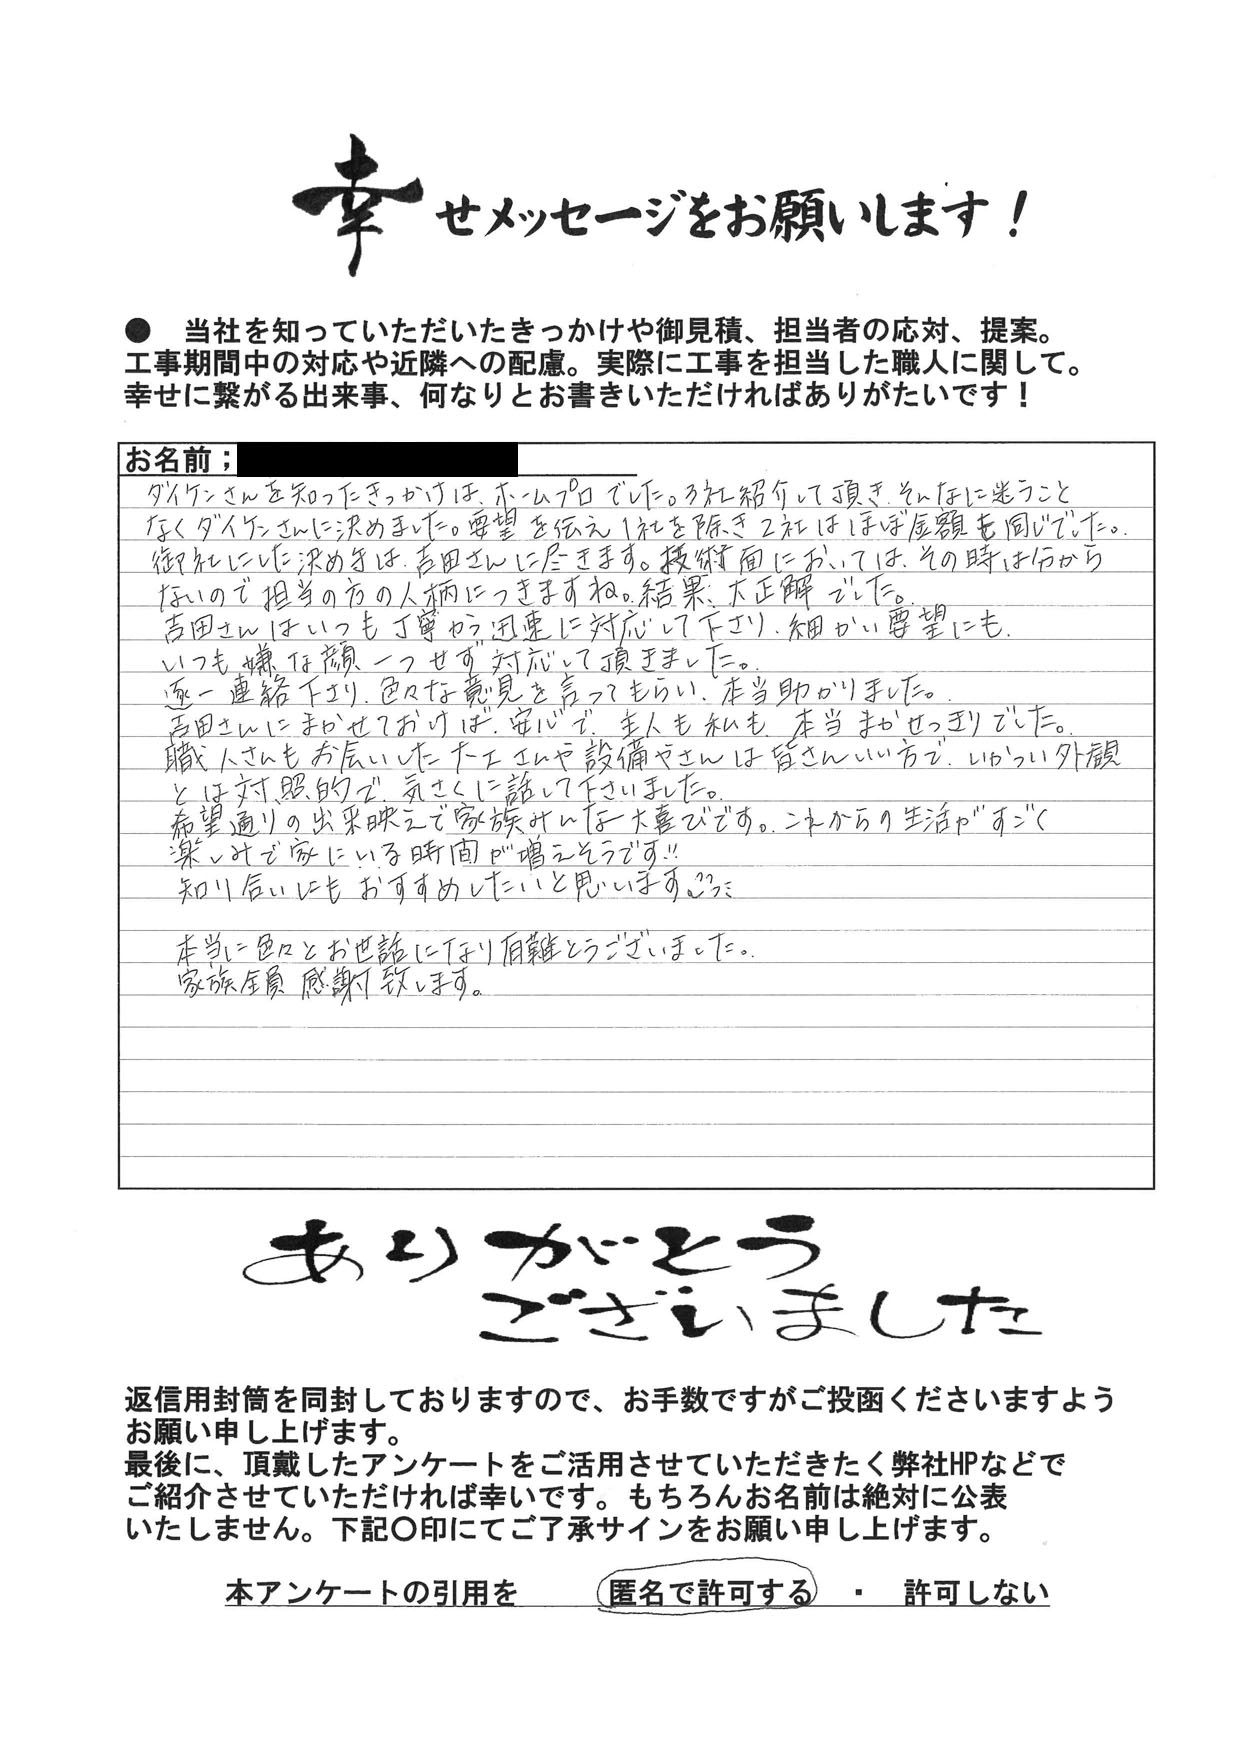 幸せメッセージをお願いします！
●　当社を知っていただいたきっかけや御見積、担当者の応対、提案。
工事期間中の対応や近隣への配慮。実際に工事を担当した職人に関して。
幸せに繋がる出来事、何なりとお書きいただければありがたいです！
お名前；
ダイケンさんを知ったきっかけは、ホームプロでした。3社紹介して頂き、そんなに迷うこと
なくダイケンさんに決めました。要望を伝え1社を除き2社はほぼ金額も同じでした。
御社にした決め手は、吉田さんに尽きます。技術面においては、その時は分から
ないので担当の方の人柄につきますね。結果、大正解でした。
吉田さんはいつも丁寧かつ迅速に対応して下さり、細かい要望にも、
いつも嫌な顔一つせず対応して頂きました。
逐一連絡下さり、色々な意見を言ってもらい、本当助かりました。
吉田さんにまかせておけば、安心で、主人も私も、本当まかせっきりでした。
職人さんもお会いした大工さんや設備やさんは皆さんいい方で、いかつい外観
とは対照的で、気さくに話して下さいました。
希望通りの出来映えで家族みんな大喜びです。これからの生活がすごく
楽しみで家にいる時間が増えそうです!!
知り合いにもおすすめしたいと思います
本当に色々とお世話になり有難とうございました。
家族全員感謝致します。
ありがとう
ございました
返信用封筒を同封しておりますので、お手数ですがご投函くださいますよう
お願い申し上げます。
最後に、頂戴したアンケートをご活用させていただきたく弊社HPなどで
ご紹介させていただければ幸いです。もちろんお名前は絶対に公表
いたしません。下記〇印にてご了承サインをお願い申し上げます。
本アンケートの引用を　匿名で許可する　・　許可しない